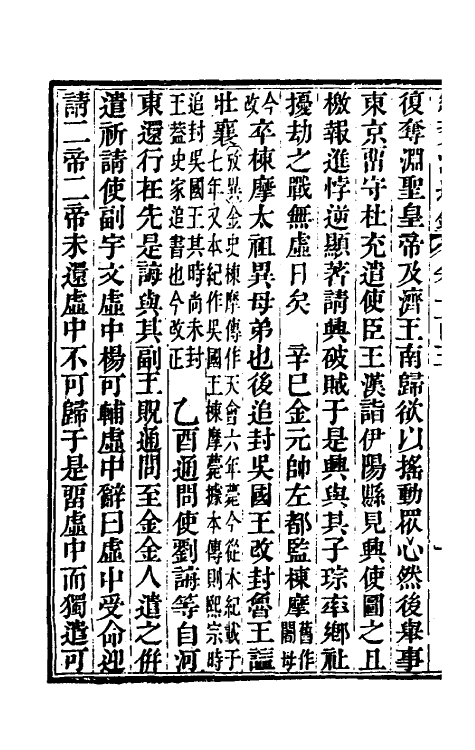 復奪淵聖皇帝及濟王南歸欲以搖動眾心然後舉事
東京畱守杜充遣使臣王漢詣伊陽縣見興使圖之且
檄報進悖逆顯著請興破賊于是興與其子琮率鄉社
擾劫之戰無虛日矣　辛巳金元帥左都監棟摩舊作闍母
今改卒棟摩太祖異母弟也後追封吳國王改封魯王諡
壯襄攷異金史棟摩傳作天會六年薨今從本紀載于
七年又本紀作吳國王棟摩薨據本傳則熙宗時
追封吳國王其時尚未封
王蓋史家追書也今改正　乙酉通問使劉誨等自河
東還行在先是誨與其副王貺通問至金金人遣之併
遣祈請使副宇文虛中楊可輔虛中辭曰虛中受命迎
請二帝二帝未還虛中不可歸于是畱虛中而獨遣可